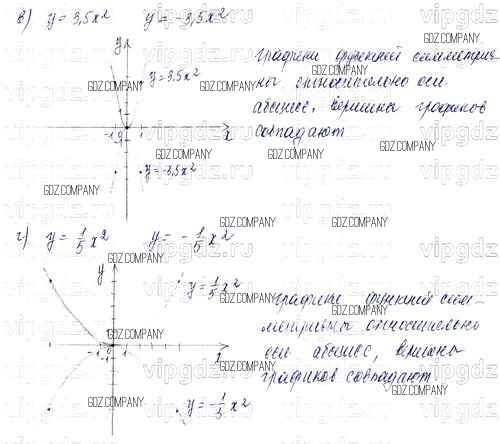 в) y = 3,5x² y = -3,5x²
y
y = 3.5x²
графики функций симметрич-
ны относительно оси
абсцисс, вершины графиков
совпадают
1
-1
-1
x
y = -3,5x²
г) y = 1/5 x² y = - 1/5 x²
y
y = 1/5 x²
графики функций сим-
метричны относительно
оси абсцисс, вершины
графиков совпадают.
-1 0 1
-1
x
y = - 1/5 x²
GDZ.COMPANY
vipgdz.ru